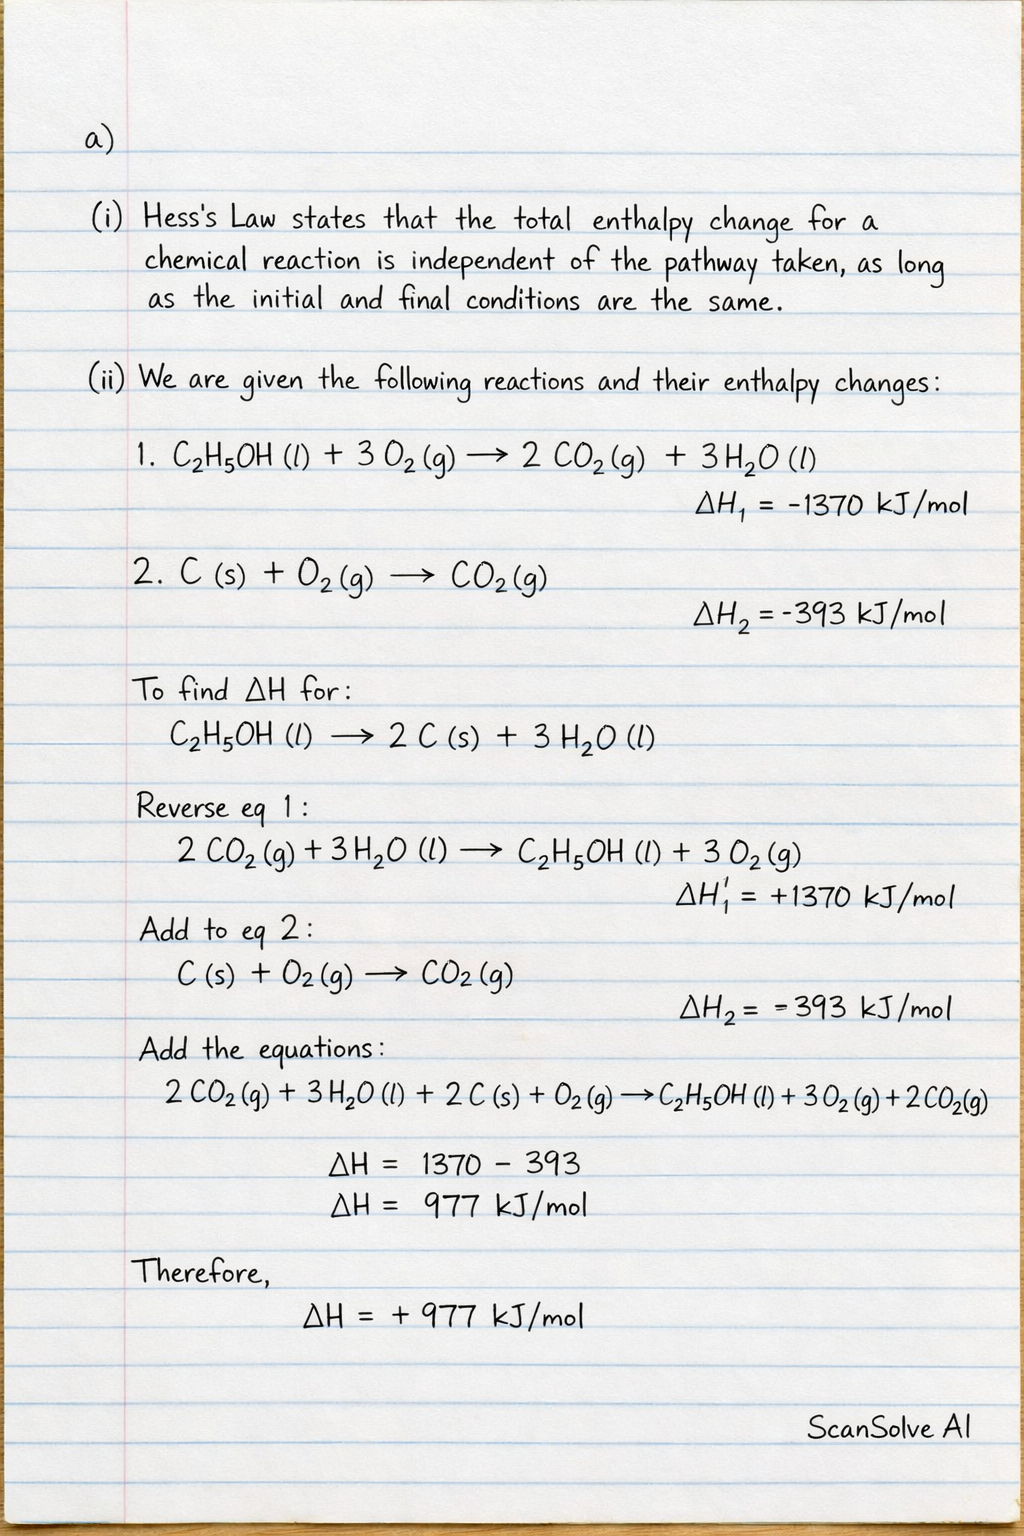 a)
(i) Hess's Law states that the total enthalpy change for a
chemical reaction is independent of the pathway taken, as long
as the initial and final conditions are the same.
(ii) We are given the following reactions and their enthalpy changes:
1. C₂H₅OH (l) + 3 O₂ (g) → 2 CO₂ (g) + 3 H₂O (l)
ΔH₁ = -1370 kJ/mol
2. C (s) + O₂ (g) → CO₂ (g)
ΔH₂ = -393 kJ/mol
To find ΔH for:
C₂H₅OH (l) → 2 C (s) + 3 H₂O (l)
Reverse eq 1:
2 CO₂ (g) + 3 H₂O (l) → C₂H₅OH (l) + 3 O₂ (g)
ΔH₁' = +1370 kJ/mol
Add to eq 2:
C (s) + O₂ (g) → CO₂ (g)
ΔH₂ = -393 kJ/mol
Add the equations:
2 CO₂ (g) + 3 H₂O (l) + 2 C (s) + O₂ (g) → C₂H₅OH (l) + 3 O₂ (g) + 2 CO₂ (g)
ΔH = 1370 - 393
ΔH = 977 kJ/mol
Therefore,
ΔH = + 977 kJ/mol
ScanSolve AI